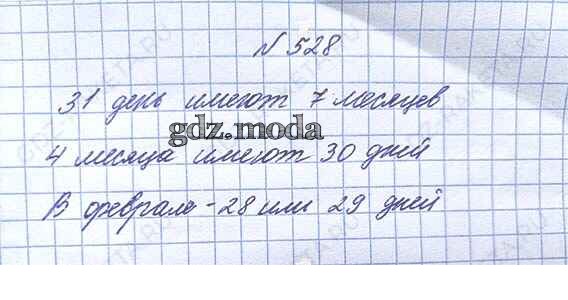 N 528
31 день имеют 7 месяцев
gdz.moda
4 месяца имеют 30 дней
В феврале - 28 или 29 дней